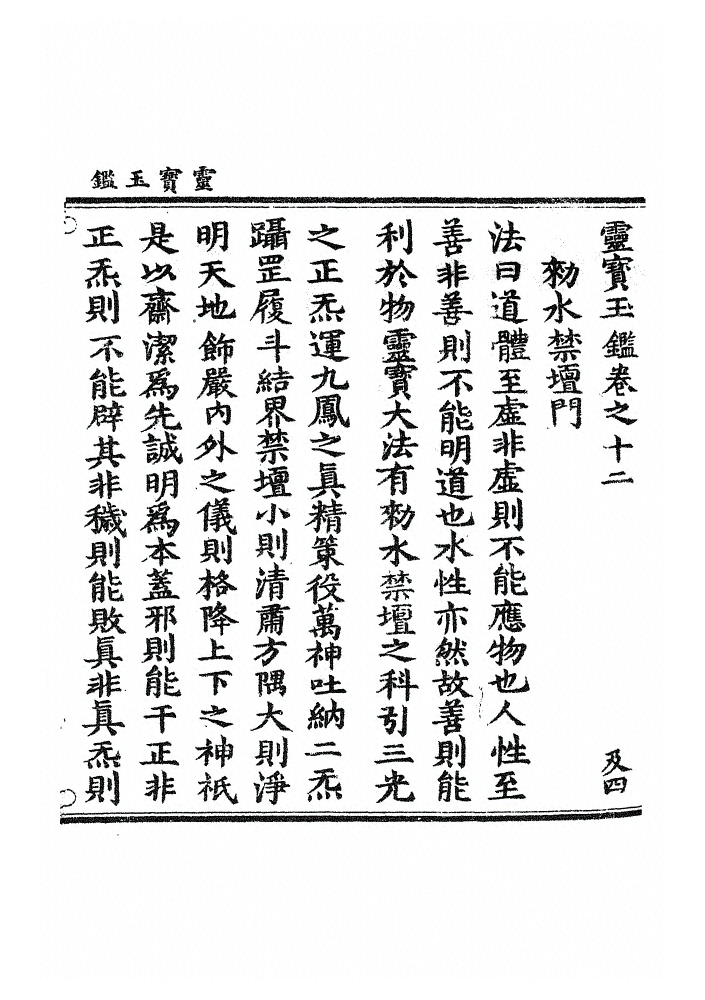 靈寶玉鑑
靈寶玉鑑卷之十二 及四
勑水禁壇門
法曰道體至虛非虛則不能應物也人性至
善非善則不能明道也水性亦然故善則能
利於物靈寶大法有勑水禁壇之科引三光
之正炁運九鳳之眞精策役萬神吐納二炁
躡罡履斗結界禁壇小則清肅方隅大則淨
明天地飾嚴內外之儀則格降上下之神祇
是以齋潔爲先誠明爲本蓋邪則能干正非
正炁則不能辟其非穢則能敗眞非眞炁則